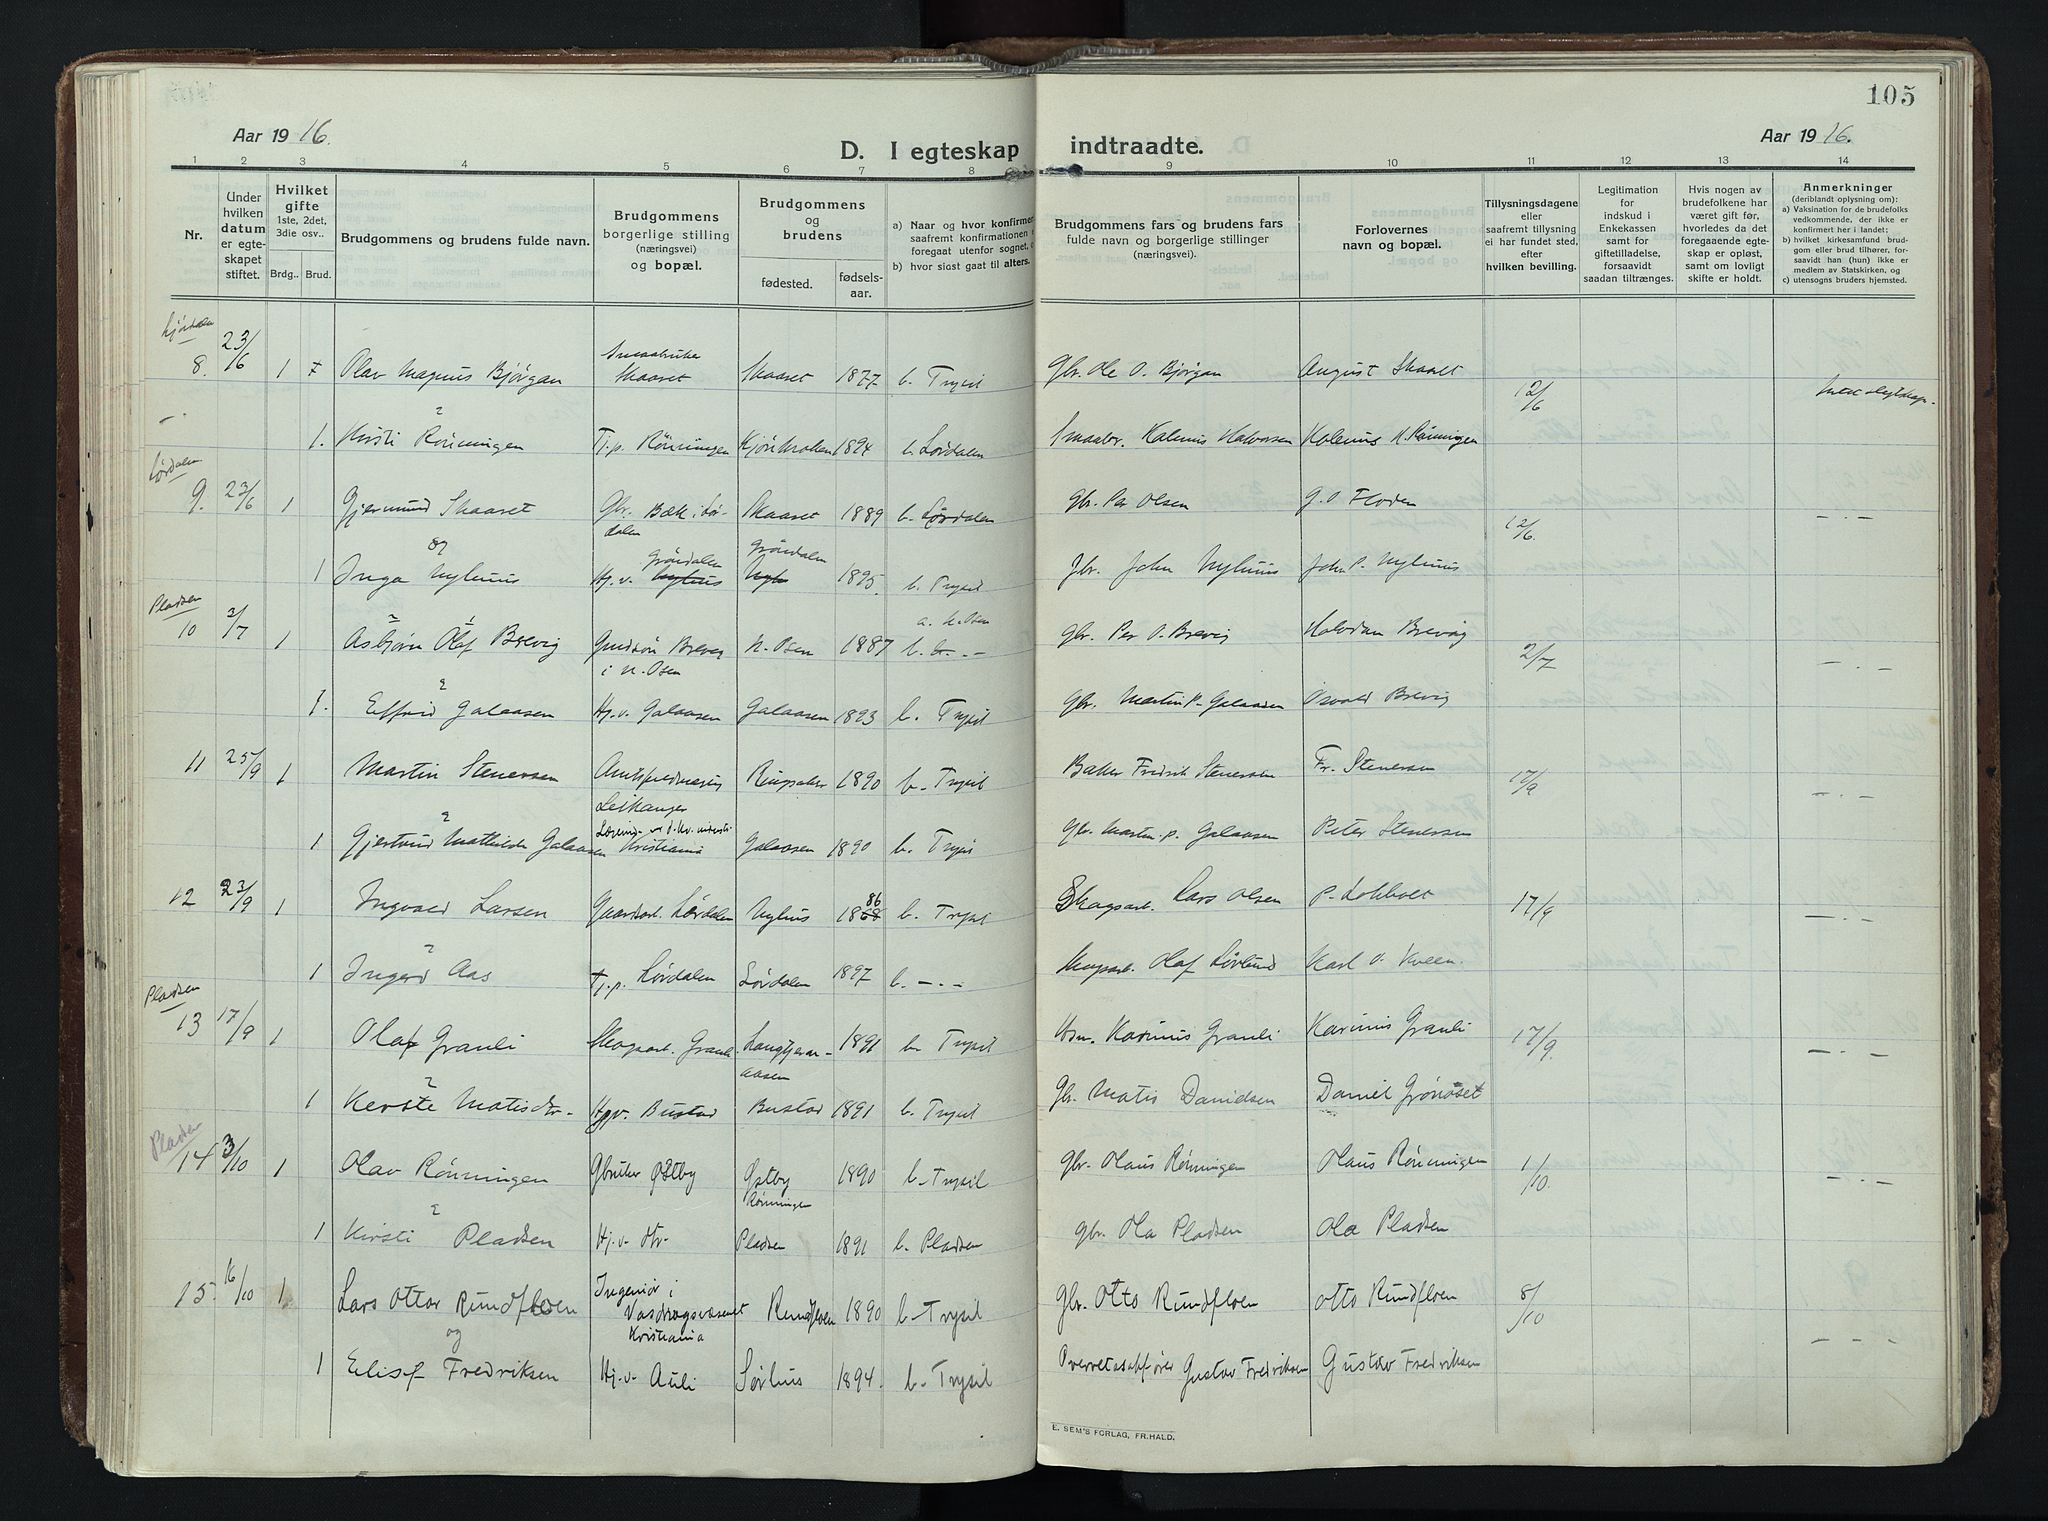 105
Aar 1916.
D. I egteskap indtraadte.
Aar 1916.
1 2 3 4 5 6 7 8 9 10 11 12 13 14
Nr.
Under hvilken datum er egteskapet stiftet.
Hvilket gifte 1ste, 2det, 3die osv..
Brdg..
Brud.
Brudgommens og brudens fulde navn.
Brudgommens borgerlige stilling (næringsvei) og bopæl.
Brudgommens og brudens
fødested.
fødsels-aar.
a) Naar og hvor konfirmer
saafremt konfirmationen
foregaat utenfor sognet,
b) hvor sisst gaat til alters.
Brudgommens fars og brudens fars
fulde navn og borgerlige stillinger
(næringsvei).
Forlovernes
navn og bopæl.
Tillysningsdagene
eller
saafremt tillysning
ei har fundet sted,
efter
hvilken bevilling.
Legitimation
for
indskud i
Enkekassen
samt for
giftetilladelse,
forsaavidt
saadan tiltrænges.
Hvis nogen av
brudefolkene har
været gift før,
hvorledes da det
foregaaende egte-
skap er opløst,
samt om lovligt
skifte er holdt.
Anmerkninger
(deriblandt oplysning om):
a) Vaksination for de brudefolks
vedkommende, der ikke er
konfirmert her i landet;
b) hvilket kirkesamfund brud-
gom eller brud tilhører, for-
saavidt han (hun) ikke er
medlem av Statskirken, og
c) utensogns bruders hjemsted.
8. 23/6 1 Olav Magnus Bjørgan Smaabruker Skaaret Skaaret 1877 b. Trysil Gbr. Ole O. Bjørgan August Skaaret 12/6
1. Kirsti Rønningen Tj.p. Rønningen 1894 b. Lørdalen Smaabr. Kalenius Halvorsen Kolenius H. Rønningen
Lørdalen
9. 23/6 1 Gjermund Skaaret Gbr. Bæk i Lørdalen Skaaret 1889 b. Lørdalen Gbr. Per Olsen G. O. Floden 12/6. — . —
og
1 Inga Nylhus Hj.v. Grøndalen Grøndalen 1895. b. Trysil Gbr. John Nylhus John P. Nylhus
Pladsen
10 2/7 1 Asbjørn Olaf Brevig i N. Osen N. Osen 1887 a. N. Osen b. — . — Gbr. Per O. Brevig Halvdan Brevig 2/7 — . —
1. Elfrid Galaasen Hj.v. Galaasen Galaasen 1893 b. Trysil Gbr. Martin P. Galaasen Osvald Brevig
11 25/9 1 Martin Stenersen Leikanger 1890 b. Trysil Baker Fredrik Stenersen Fr. Stenersen 17/9 — . —
1 Gjertrud Mathilde Galaasen Kristiania Galaasen 1890 b. Trysil Gbr. Martin P. Galaasen Peter Stenersen
12 23/9 1 Ingvald Larsen Gaardarb. Lørdalen Nylhus 1886 b. Trysil Skogsarb. Lars Olsen P. Lokholt 17/9 — . —
1 Ingerd Aas Tj.p. Lørdalen Lørdalen 1897 b. — . — Skogsarb. Olaf Løvlund Karl O. Kveen.
Pladsen
13 17/9 1 Olaf Granli Skogsarb. Granli Langtjernaasen 1891 b. Trysil Hsm. Karinius Granli Karinius Granli 17/9. — . —
1 Kerste Matisdtr. Bustad Bustad 1891 b. Trysil Gbr. Matis Danidsen Daniel Grønoset
Pladsen
14 3/10 1 Olav Rønningen Gbruker Østby Østby Rønningen 1890 b. Trysil Gbr. Olaus Rønningen Olaus Rønningen 1/10. — . —
1 Kirsti Pladsen Hj.v. Pladsen 1891 b. Pladsen gbr. Ola Pladsen Ola Pladsen
15. 16/10 1 Lars Ottar Rundfloen Ingeniør i Vasdragsvæsenet Kristiania Rundfloen 1890 b. Trysil Gbr. Otto Rundfloen Otto Rundfloen 8/10 — . —
og
1 Elisef Fredriksen Hj.v. Auli Sørhus 1894. b. Trysil Overretssakfører Gustav Fredriksen Gustav Fredriksen
E. SEM'S FORLAG, FR.HALD.